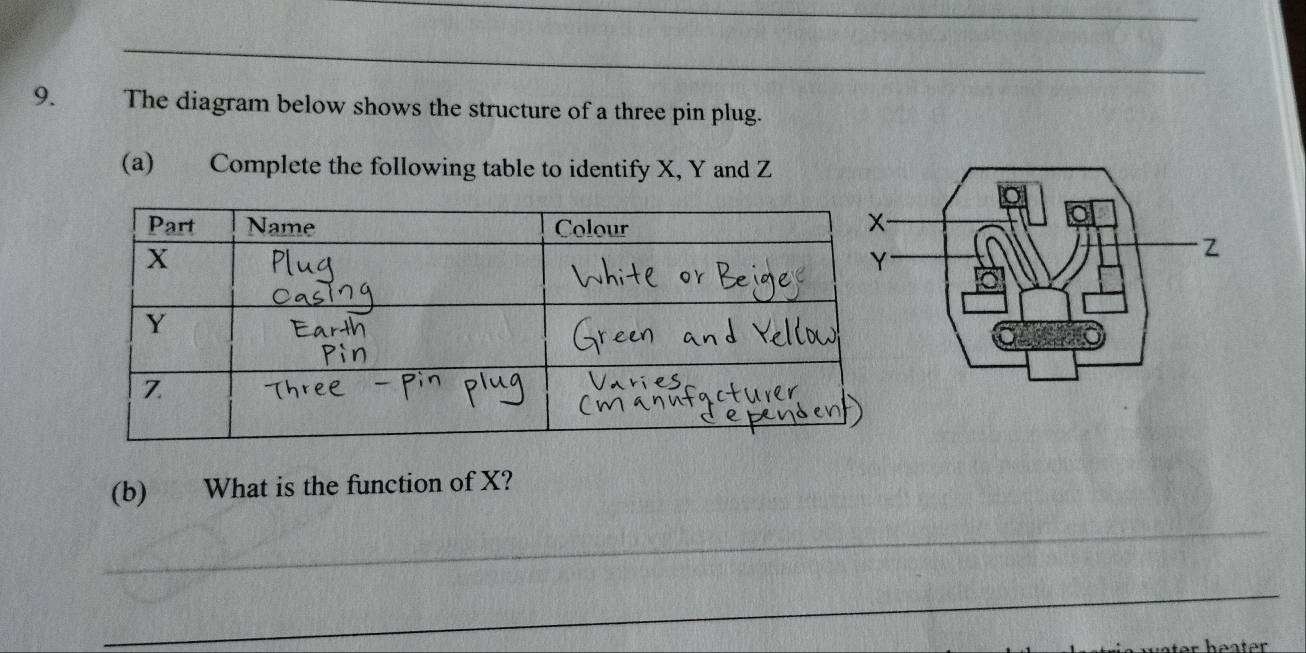 9. The diagram below shows the structure of a three pin plug.
(a) Complete the following table to identify X, Y and Z
Part Name Colour
X Plug casing White or Beige
Y Earth Pin Green and Yellow
Z Three - pin plug Varies (manufacturer dependent)
X
Y
Z
(b) What is the function of X?
water heater